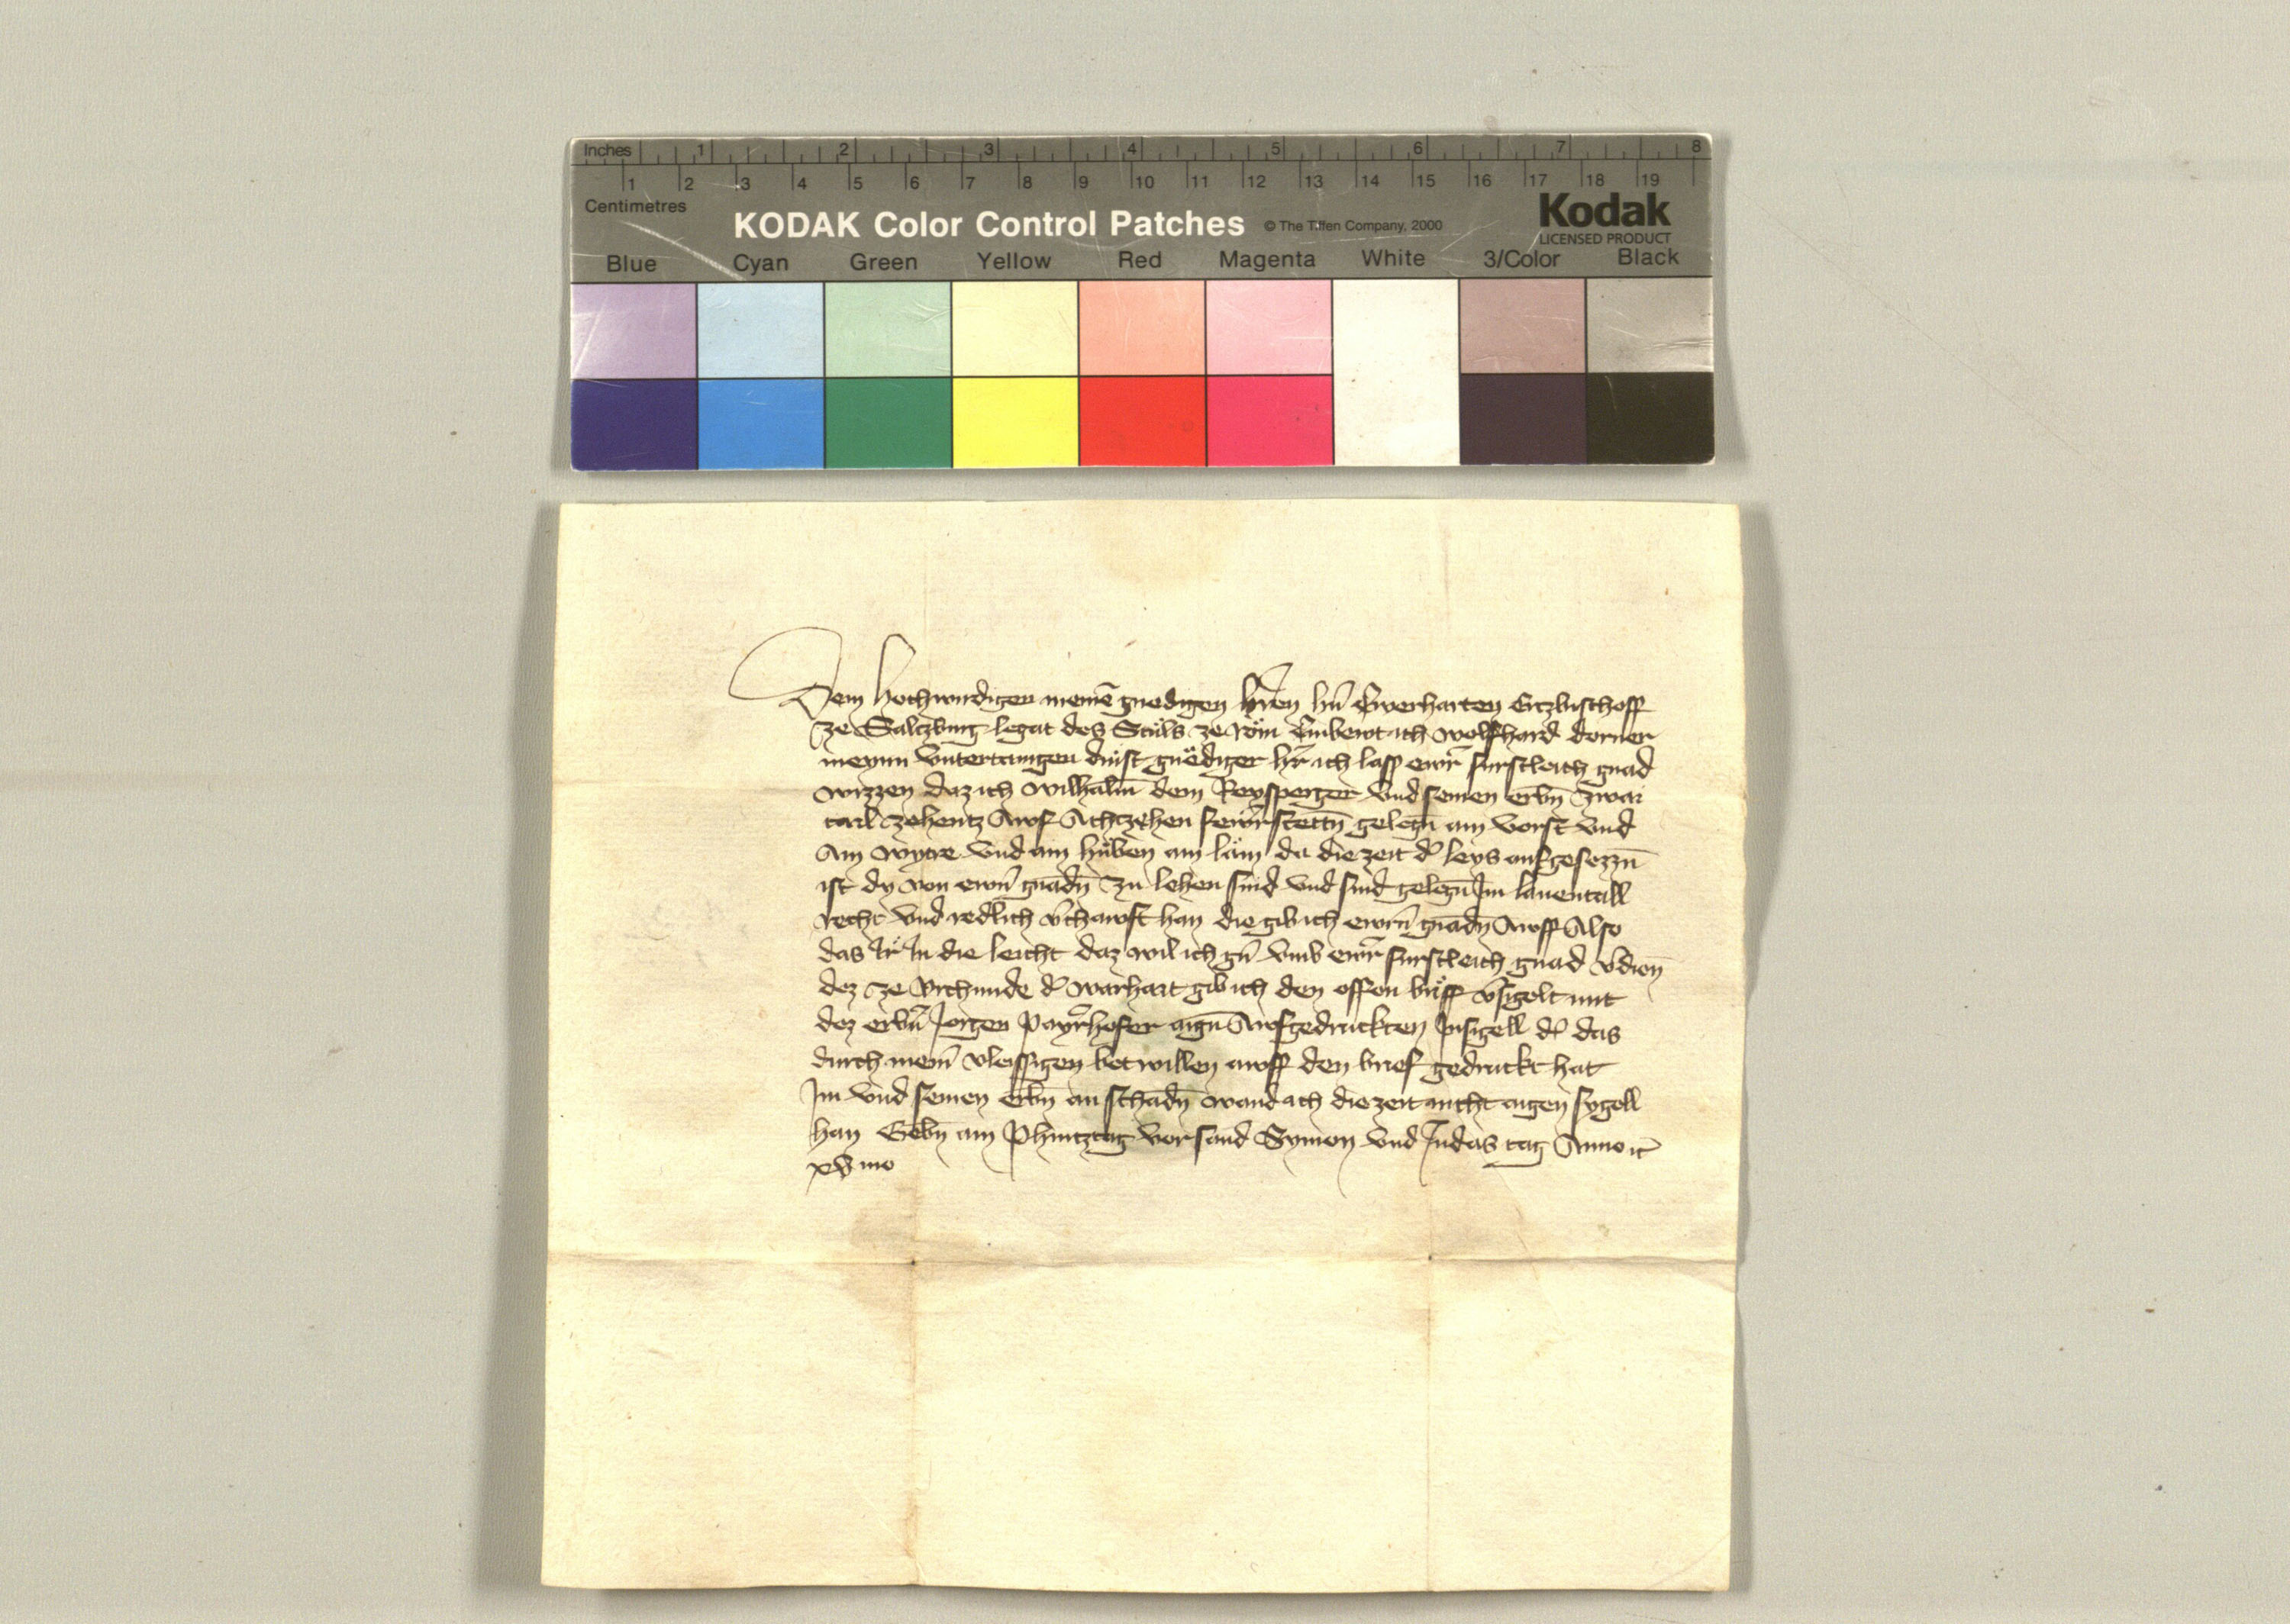 Inches 1 2 3 4 5 6 7 8
1 2 3 4 5 6 7 8 9 10 11 12 13 14 15 16 17 18 19
Centimetres
KODAK Color Control Patches © The Tiffen Company, 2000 Kodak
LICENSED PRODUCT
Blue Cyan Green Yellow Red Magenta White 3/Color Black
Dem hochwirdigen meinē gnedigen hr̄en hn̄ Eberharten Ertzbischoff
ze Saltzburg legat des Stůls ze Röm Embewt ich wolfhard dorner
meynn vntertanigen dinst gnëdiger hr̄ ich lass ewr̄ furstleich gnad
wizzen daz ich wilhalm̄ dem Reysperger vnd seinen erbn̄ zwai
tail zehentz Awf Achtzehen fewrstettn̄ gelegn̄ am vorst vnd
Am wyare vnd am hüben am läm da die zeit d' leys aufgesezzn̄
ist dy von ewrn̄ gnadn̄ zu lehen sind vnd sind gelegn̄ Im lauentall
recht vnd redlich v'chawft han die gib ich ewrn̄ gnadn̄ Awff Also
das Ir In die leicht daz wil ich gn̄ vmb ewr̄ furstleich gnad v'dien̄
dez ze vrchunde d' warhait gib ich den offen brïff v'sigelt mit
dez erbn̄ Jorgen Payr̄hofer aign̄ Awfgedruckten Insigell d' das
durch mein̄ vleissigen bet willen awff den brief gedruckt hat
Im vnd seinen erbn̄ an schadn̄ wand ich die zeit nicht aigen sygell
han Gebn̄ am Phintztag vor sand Symon vnd Judas tag Anno
xv mo